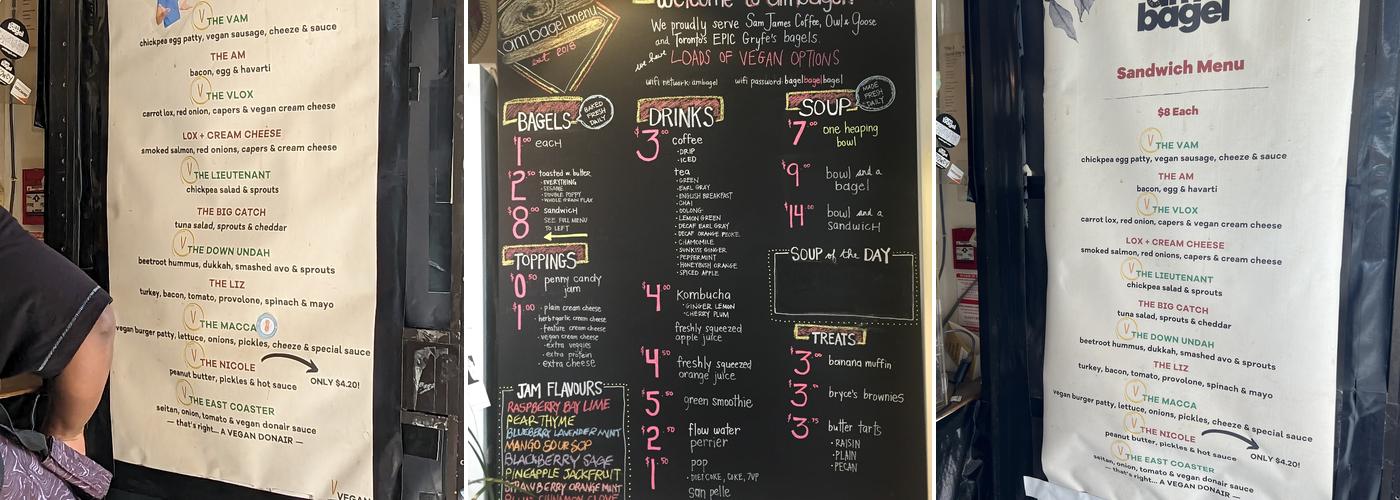 THE VAM
chickpea egg patty, vegan sausage, cheeze & sauce
THE AM
bacon, egg & havarti
THE VLOX
carrot lox, red onion, capers & vegan cream cheese
LOX + CREAM CHEESE
smoked salmon, red onions, capers & cream cheese
THE LIEUTENANT
chickpea salad & sprouts
THE BIG CATCH
tuna salad, sprouts & cheddar
THE DOWN UNDAH
beetroot hummus, dukkah, smashed avo & sprouts
THE LIZ
turkey, bacon, tomato, provolone, spinach & mayo
THE MACCA
vegan burger patty, lettuce, onions, pickles, cheeze & special sauce
THE NICOLE
peanut butter, pickles & hot sauce
ONLY $4.20!
THE EAST COASTER
seitan, onion, tomato & vegan donair sauce
— that's right... A VEGAN DONAIR —
V VEGAN
am bagel menu
est 2018
Welcome to ambagel!
We proudly serve Sam James Coffee, Owl & Goose
and Toronto's EPIC Gryfe's bagels.
we have LOADS OF VEGAN OPTIONS
wifi network: ambagel wifi password: bagelbagelbagel
BAGELS
BAKED FRESH DAILY
$1.00 each
$2.50 toasted w. butter
• EVERYTHING
• SESAME
• DOUBLE POPPY
• WHOLE GRAIN FLAX
$8.00 sandwich
SEE FULL MENU
TO LEFT
TOPPINGS
$0.50 penny candy
jam
$1.00 • plain cream cheese
• herb + garlic cream cheese
• feature cream cheese
• vegan cream cheese
• extra veggies
• extra protein
• extra cheese
JAM FLAVOURS
RASPBERRY BAY LIME
PEAR THYME
BLUEBERRY LAVENDER MINT
MANGO SOURSOP
BLACKBERRY SAGE
PINEAPPLE JACKFRUIT
STRAWBERRY ORANGE MINT
BLUE CINNAMON CLOVE
DRINKS
$3.00 coffee
• DRIP
• ICED
tea
• GREEN
• EARL GRAY
• ENGLISH BREAKFAST
• CHAI
• OOLONG
• LEMON GREEN
• DECAF EARL GRAY
• DECAF ORANGE PEKOE
• CHAMOMILE
• SUNKISS GINGER
• PEPPERMINT
• HONEYBUSH ORANGE
• SPICED APPLE
$4.00 Kombucha
• GINGER LEMON
• CHERRY PLUM
freshly squeezed
apple juice
$4.50 freshly squeezed
orange juice
$5.50 green smoothie
$2.50 flow water
perrier
$1.50 pop
• DIET COKE, COKE, 7UP
san pelle
SOUP
MADE FRESH DAILY
$7.00 one heaping
bowl
$9.00 bowl and a
bagel
$14.00 bowl and a
sandwich
SOUP of the DAY
TREATS
$3.00 banana muffin
$3. bryce's brownies
$3.75 butter tarts
• RAISIN
• PLAIN
• PECAN
am
bagel
Sandwich Menu
$8 Each
THE VAM
chickpea egg patty, vegan sausage, cheeze & sauce
THE AM
bacon, egg & havarti
THE VLOX
carrot lox, red onion, capers & vegan cream cheese
LOX + CREAM CHEESE
smoked salmon, red onions, capers & cream cheese
THE LIEUTENANT
chickpea salad & sprouts
THE BIG CATCH
tuna salad, sprouts & cheddar
THE DOWN UNDAH
beetroot hummus, dukkah, smashed avo & sprouts
THE LIZ
turkey, bacon, tomato, provolone, spinach & mayo
THE MACCA
vegan burger patty, lettuce, onions, pickles, cheeze & special sauce
THE NICOLE
peanut butter, pickles & hot sauce
ONLY $4.20!
THE EAST COASTER
seitan, onion, tomato & vegan donair sauce
— that's right... A VEGAN DONAIR —